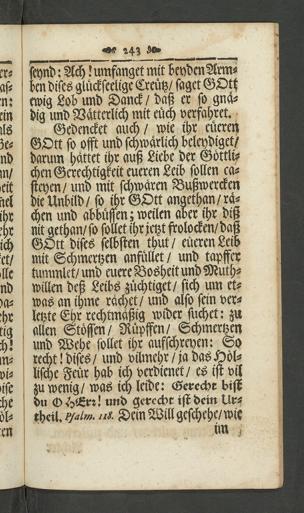 243
seynd: Ach! umfanget mit beyden Arm-
ben dises glückseelige Creütz/ saget GOtt
ewig Lob und Danck/ daß er so gnä-
dig und Vätterlich mit eüch verfahret.
Gedencket auch/ wie ihr eüeren
GOtt so offt und schwärlich beleydiget/
darum hättet ihr auß Liebe der Göttli-
chen Gerechtigkeit eueren Leib sollen ca-
steyen/ und mit schwären Bußwercken
die Unbild/ so ihr GOtt angethan/ rä-
chen und abbüssen; weilen aber ihr diß
nit gethan/ so sollet ihr jetzt frolocken/ daß
GOtt dises selbsten thut/ eüeren Leib
mit Schmertzen anfüllet/ und tapffer
tummlet/ und euere Bosheit und Muth-
willen deß Leibs züchtiget/ sich um et-
was an ihme rächet/ und also sein ver-
letzte Ehr rechtmäßig wider suchet: zu
allen Stössen/ Rüpffen/ Schmertzen
und Wehe sollet ihr aufschreyen: So
recht! dises/ und vilmehr/ ja das Höl-
lische Feür hab ich verdienet/ es ist vil
zu wenig/ was ich leide: Gerecht bist
du O HErr! und gerecht ist dein Ur-
theil. Psalm. 118. Dein Will geschehe/ wie
im